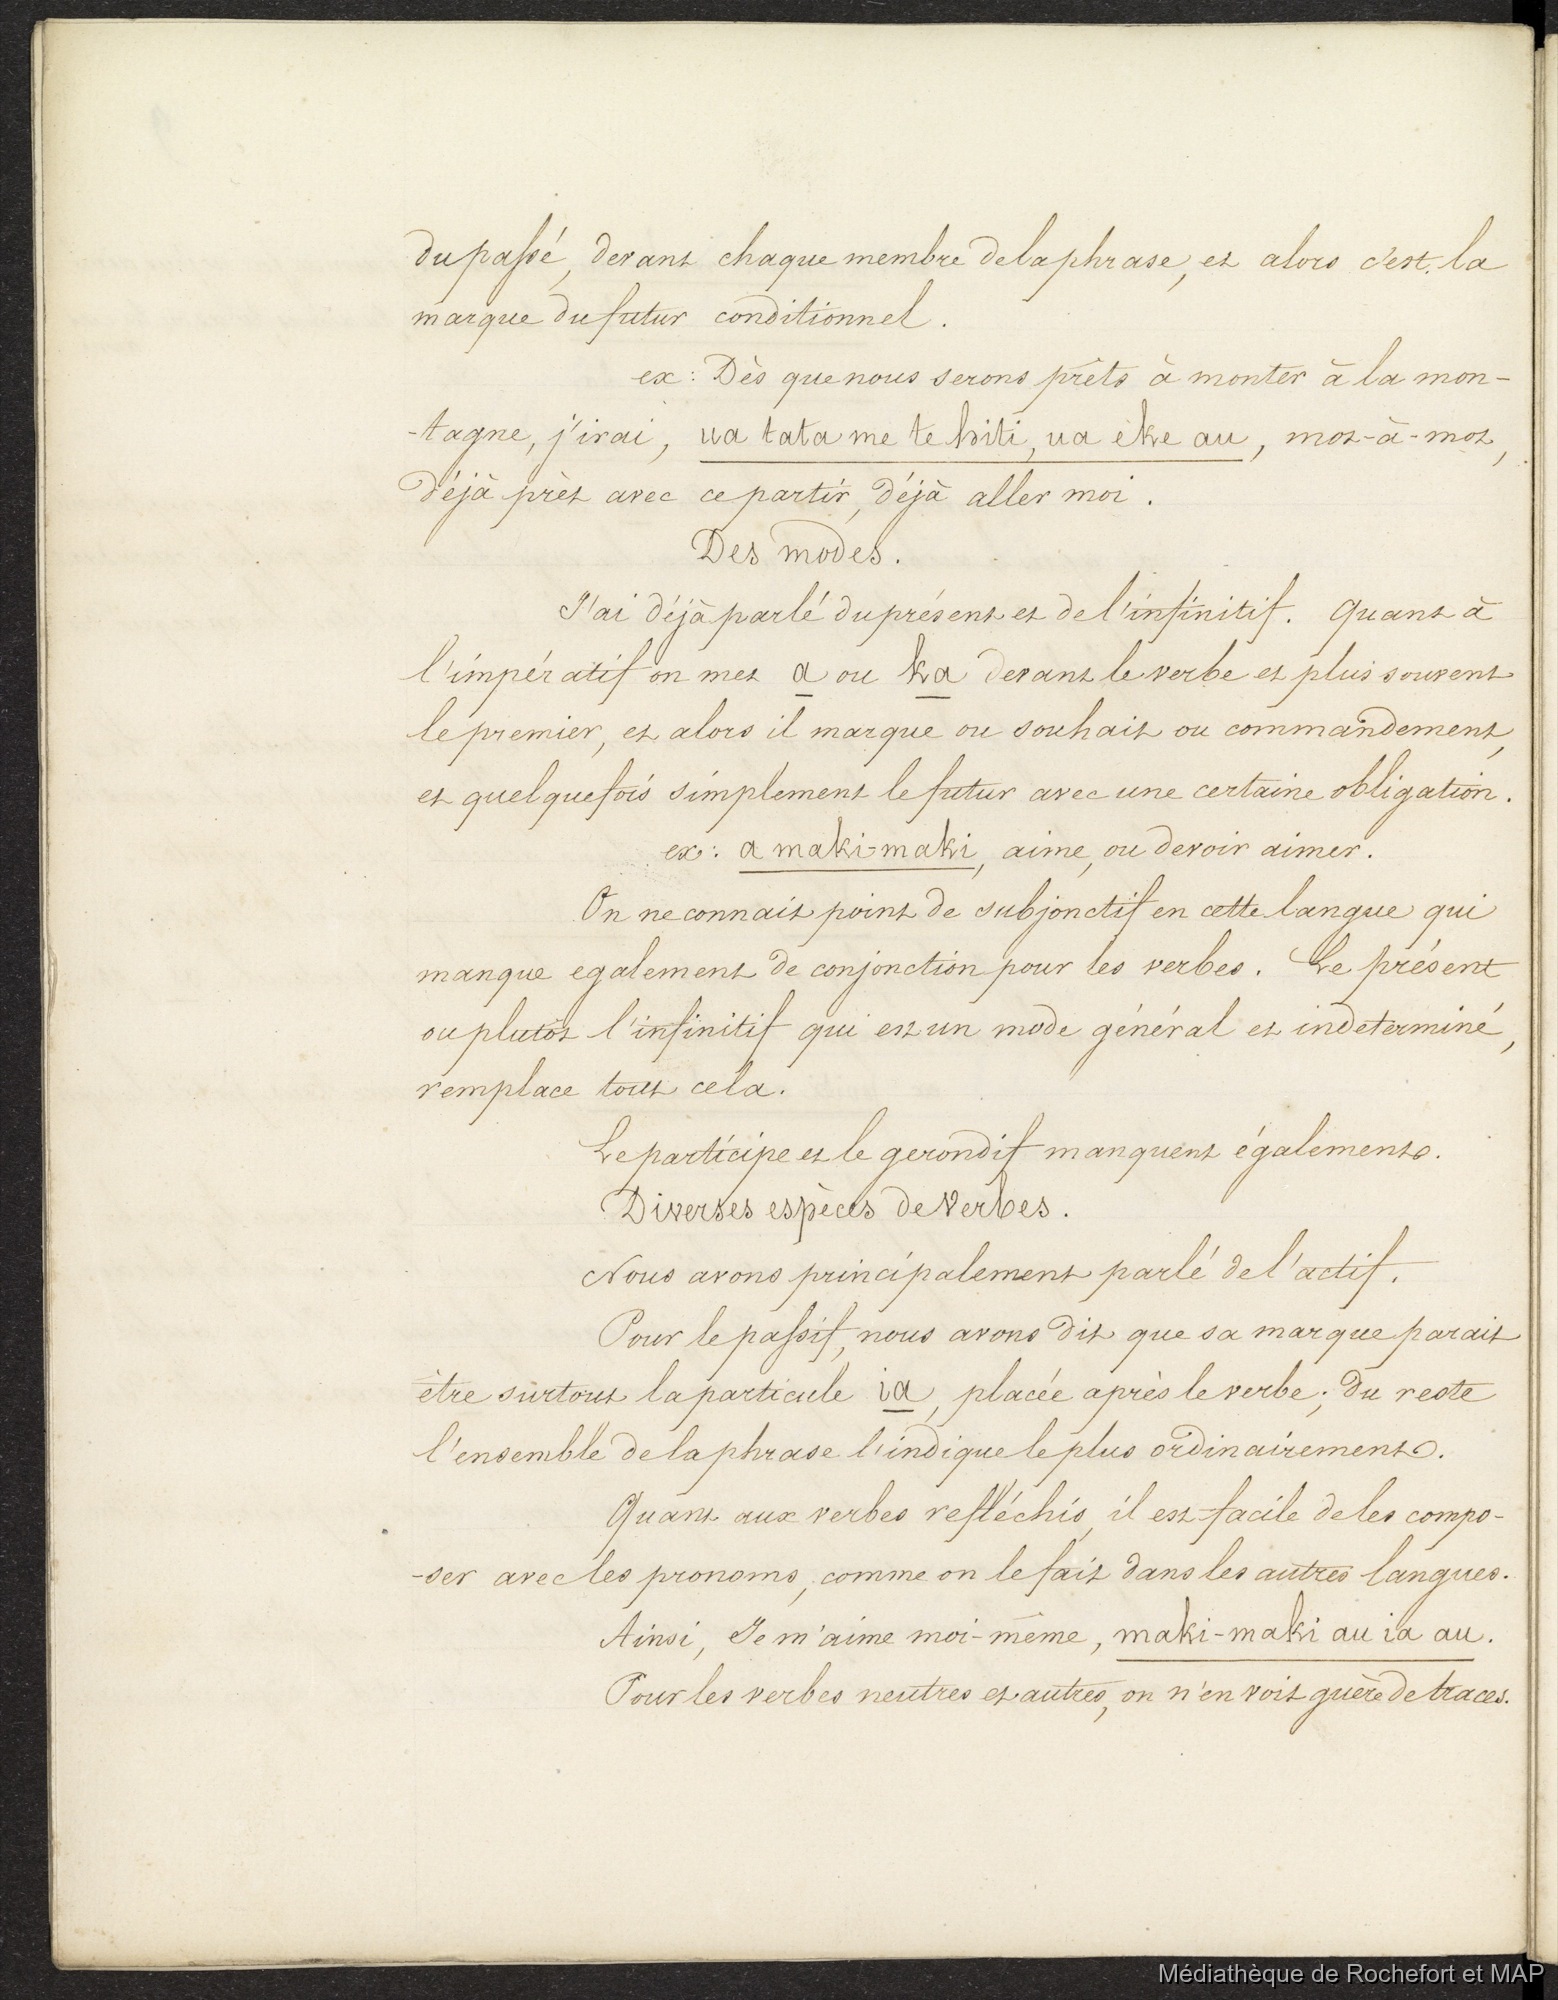 du passé, devant chaque membre de la phrase, et alors c'est la
marque du futur conditionnel.
ex: Dès que nous serons prêts à monter à la mon-
-tagne, j'irai, ua tata me te hiti, ua èke au, mot-à-mot,
déjà prèt avec ce partir, déjà aller moi.
Des modes.
J'ai déjà parlé du présent et de l'infinitif. Quant à
l'impératif on met a ou ka devant le verbe et plus souvent
le premier, et alors il marque ou souhait ou commandement,
et quelquefois simplement le futur avec une certaine obligation.
ex: a maki-maki, aime, ou devoir aimer.
On ne connait point de subjonctif en cette langue qui
manque egalement de conjonction pour les verbes. Le présent
ou plutôt l'infinitif qui est un mode général et indeterminé,
remplace tout cela.
Le participe et le gerondif manquent également.
Diverses espèces de Verbes.
Nous avons principalement parlé de l'actif.
Pour le passif, nous avons dit que sa marque parait
être surtout la particule ia, placée après le verbe; du reste
l'ensemble de la phrase l'indique le plus ordinairement.
Quant aux verbes refléchis, il est facile de les compo-
-ser avec les pronoms, comme on le fait dans les autres langues.
Ainsi, Je m'aime moi-même, maki-maki au ia au.
Pour les verbes neutres et autres, on n'en voit guère de traces.
Médiathèque de Rochefort et MAP